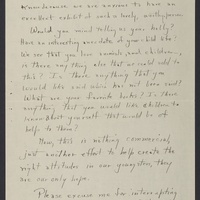 Knowledge we are anxious to have an
excellent exhibit of such a lovely,
Would you mind telling us your hobby?
an interesting
We see that you love animals, and children,
is there any thing else that we could add to
this? Is there anything that you
would like and who has not been said?
What are your favorite books? Is there
anything that you would like children to
know about yourself that would be of
help to them?
Now, this is nothing commercial,
just another effort to help create the
right attitudes in our youngsters, they
are our only hope.
Please excuse me for interrupting